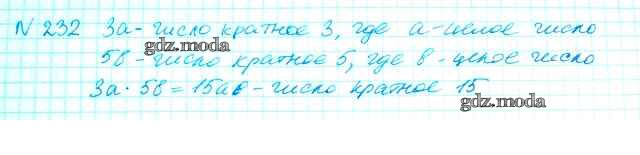 N 232 3а - число кратное 3, где а - целое число
gdz.moda
5в - число кратное 5, где в - целое число
3а · 5в = 15ав - число кратное 15
gdz.moda